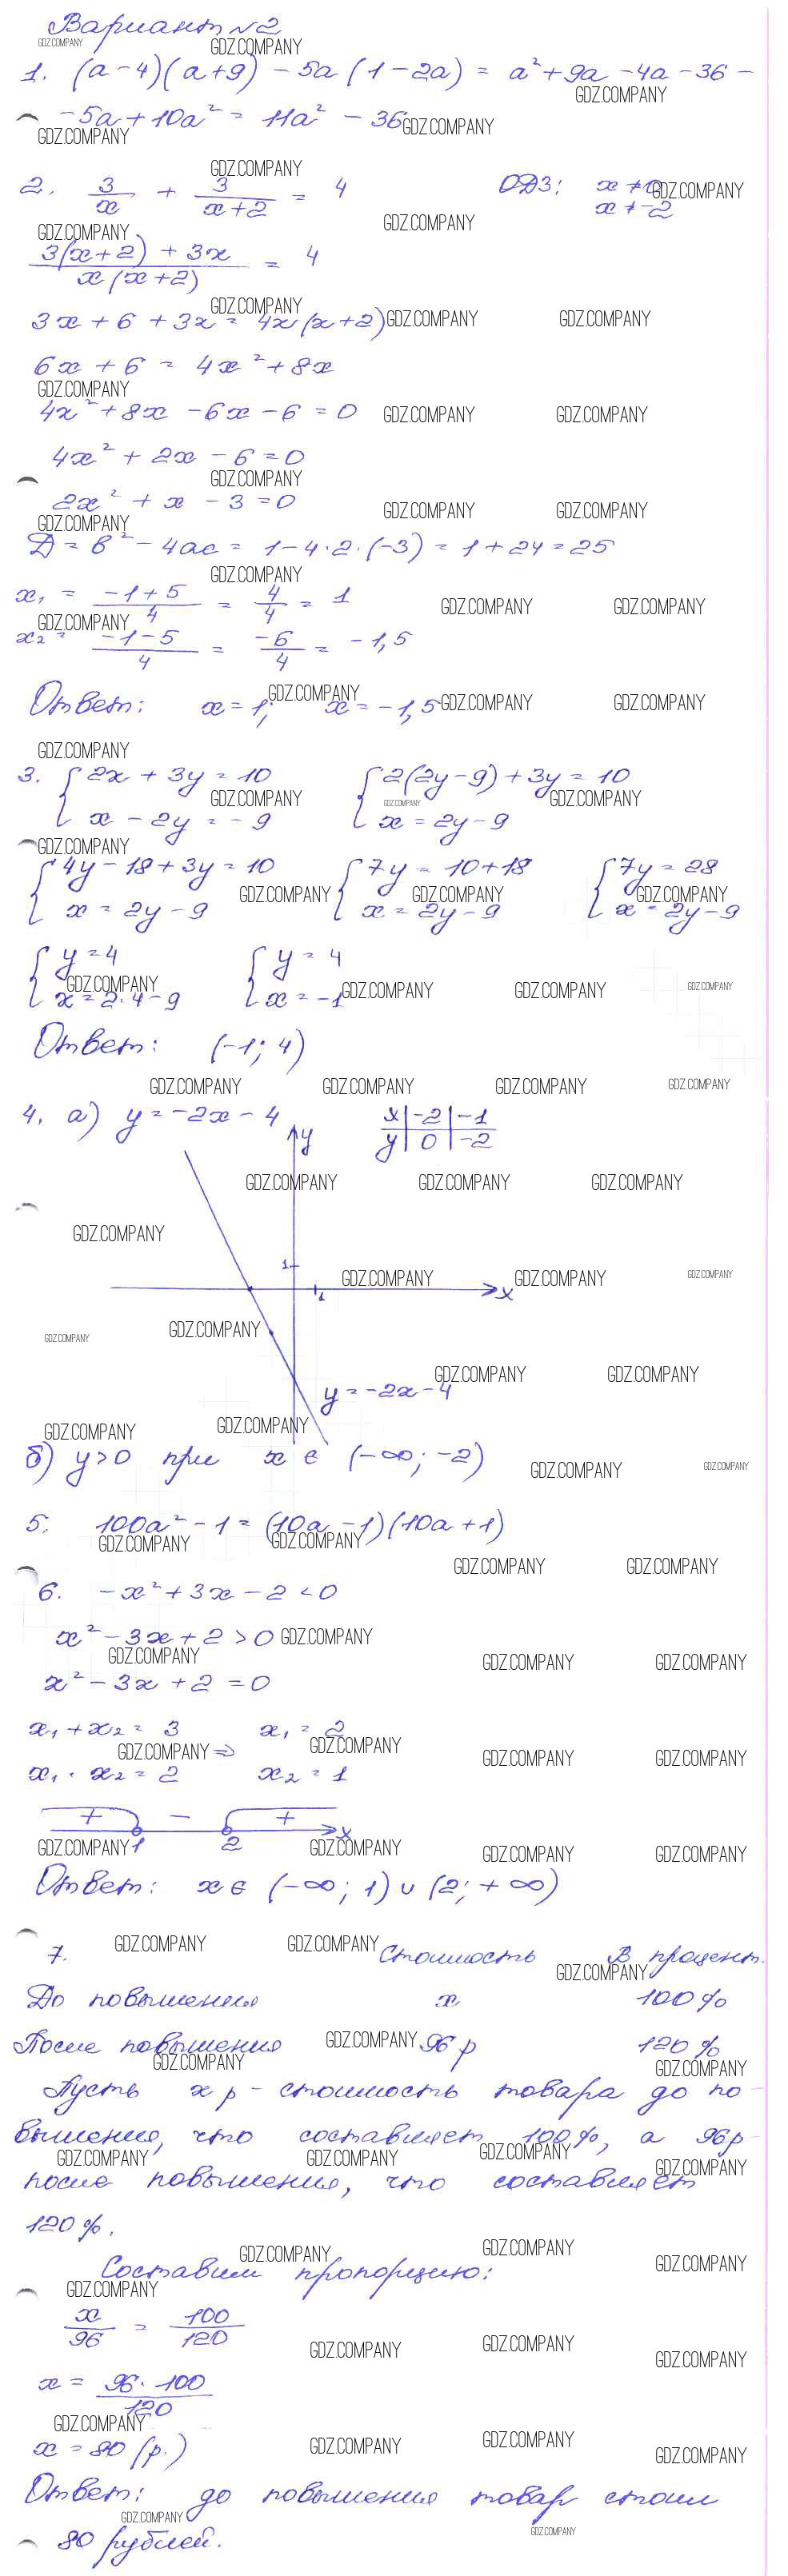 Вариант №2
1. (a-4)(a+9) - 5a(1-2a) = a²+9a-4a-36-
-5a+10a² = 11a² - 36
2. 3/x + 3/(x+2) = 4 ОДЗ: x≠0
x≠-2
(3(x+2)+3x)/(x(x+2)) = 4
3x+6+3x = 4x(x+2)
6x+6 = 4x²+8x
4x²+8x-6x-6=0
4x²+2x-6=0
2x²+x-3=0
Д = b²-4ac = 1-4·2·(-3) = 1+24 = 25
x₁ = (-1+5)/4 = 4/4 = 1
x₂ = (-1-5)/4 = -6/4 = -1,5
Ответ: x=1; x=-1,5
3. { 2x+3y=10 { 2(2y-9)+3y=10
x-2y=-9 x=2y-9
{ 4y-18+3y=10 { 7y=10+18 { 7y=28
x=2y-9 x=2y-9 x=2y-9
{ y=4 { y=4
x=2·4-9 x=-1
Ответ: (-1; 4)
4. а) y=-2x-4 x | -2 | -1
y | 0 | -2
y
1
1 x
y=-2x-4
б) y>0 при x ∈ (-∞; -2)
5. 100a²-1 = (10a-1)(10a+1)
6. -x²+3x-2<0
x²-3x+2>0
x²-3x+2=0
x₁+x₂=3 x₁=2
⇒
x₁·x₂=2 x₂=1
+ - +
1 2 x
Ответ: x∈(-∞; 1)∪(2; +∞)
7. Стоимость В процент.
До повышения x 100%
После повышения 96 р 120%
Пусть x р - стоимость товара до по-
вышения, что составляет 100%, а 96р -
после повышения, что составляет
120%.
Составим пропорцию:
x/96 = 100/120
x = (96·100)/120
x = 80 (р.)
Ответ: до повышения товар стоил
80 рублей.
GDZ.COMPANY